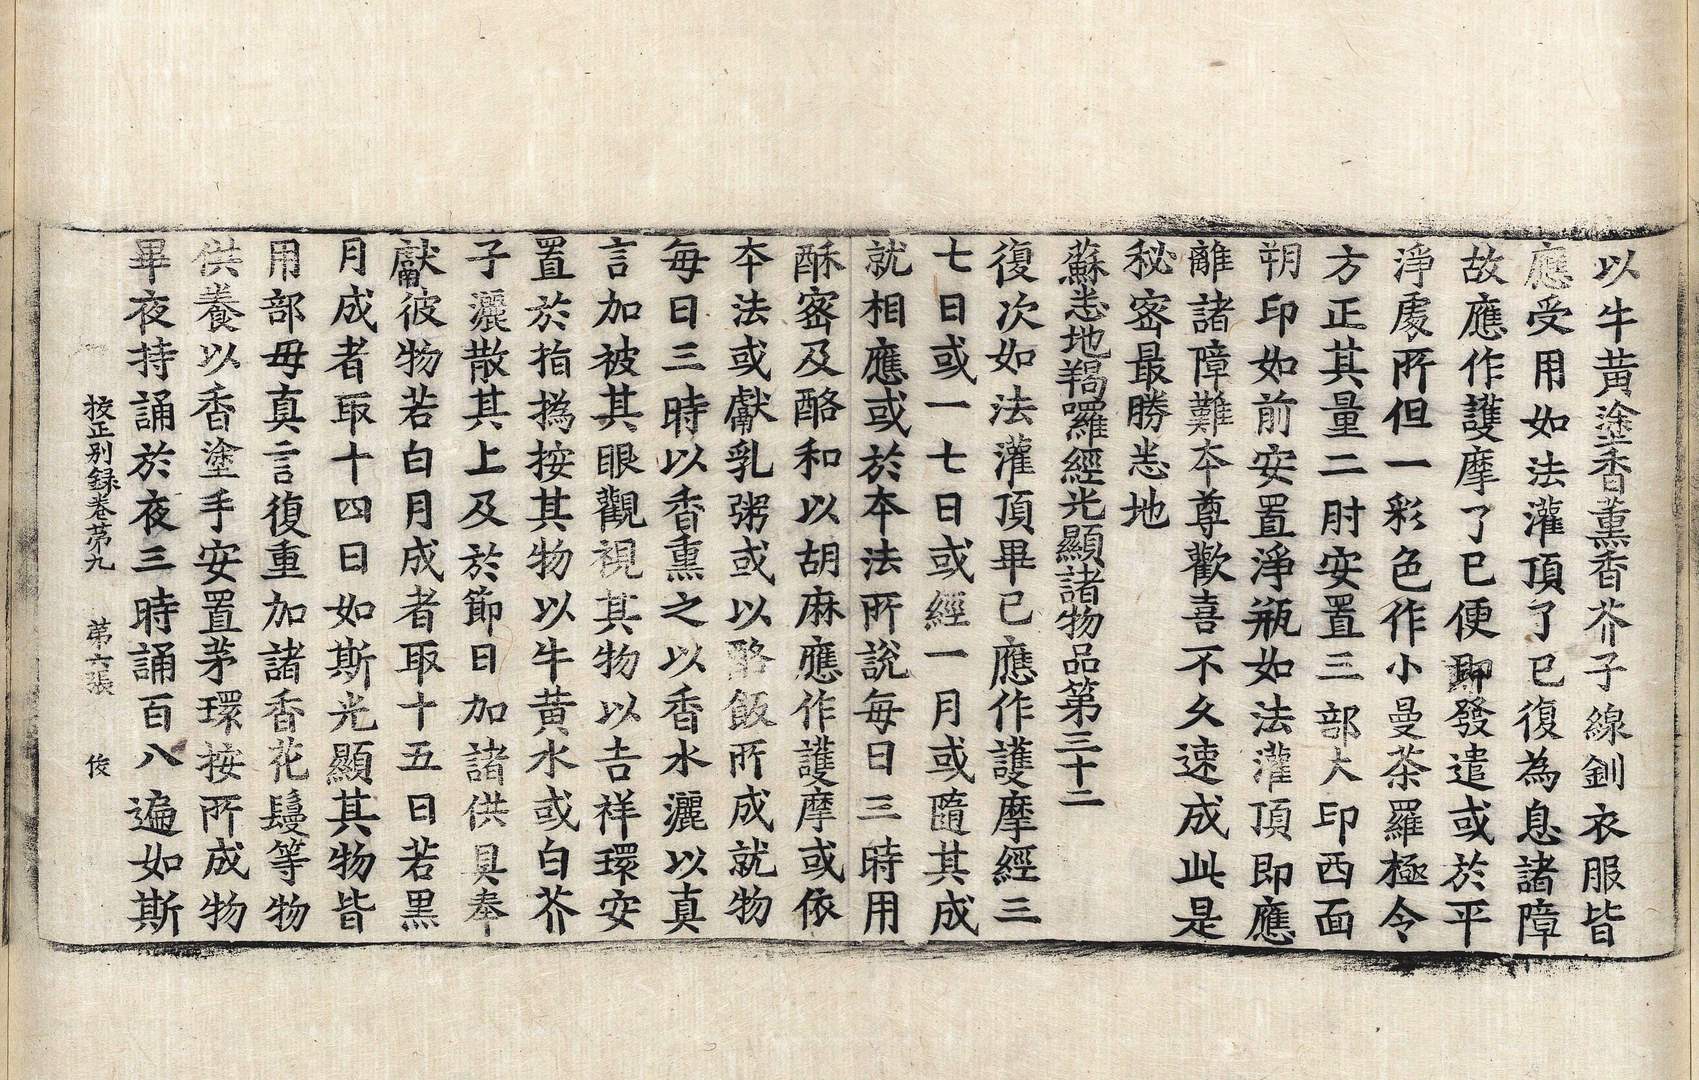 以牛黃塗香薰香芥子線釧衣服皆
應受用如法灌頂了已復為息諸障
故應作護摩了已便即發遣或於平
淨處所但一彩色作小曼茶羅極令
方正其量二肘安置三部大印西面
朔印如前安置淨瓶如法灌頂即應
離諸障難本尊歡喜不久速成此是
秘密最勝悉地
蘇悉地羯囉經光顯諸物品第三十二
復次如法灌頂畢已應作護摩經三
七日或一七日或經一月或隨其成
就相應或於本法所說每日三時用
酥密及酪和以胡麻應作護摩或依
本法或獻乳粥或以酪飯所成就物
每日三時以香熏之以香水灑以真
言加被其眼觀視其物以吉祥環安
置於拍撝按其物以牛黃水或白芥
子灑散其上及於節日加諸供具奉
獻彼物若白月成者取十五日若黑
月成者取十四日如斯光顯其物皆
用部母真言復重加諸香花鬘等物
供養以香塗手安置茅環按所成物
畢夜持誦於夜三時誦百八遍如斯
挍正別録卷苐九　苐六張　俊